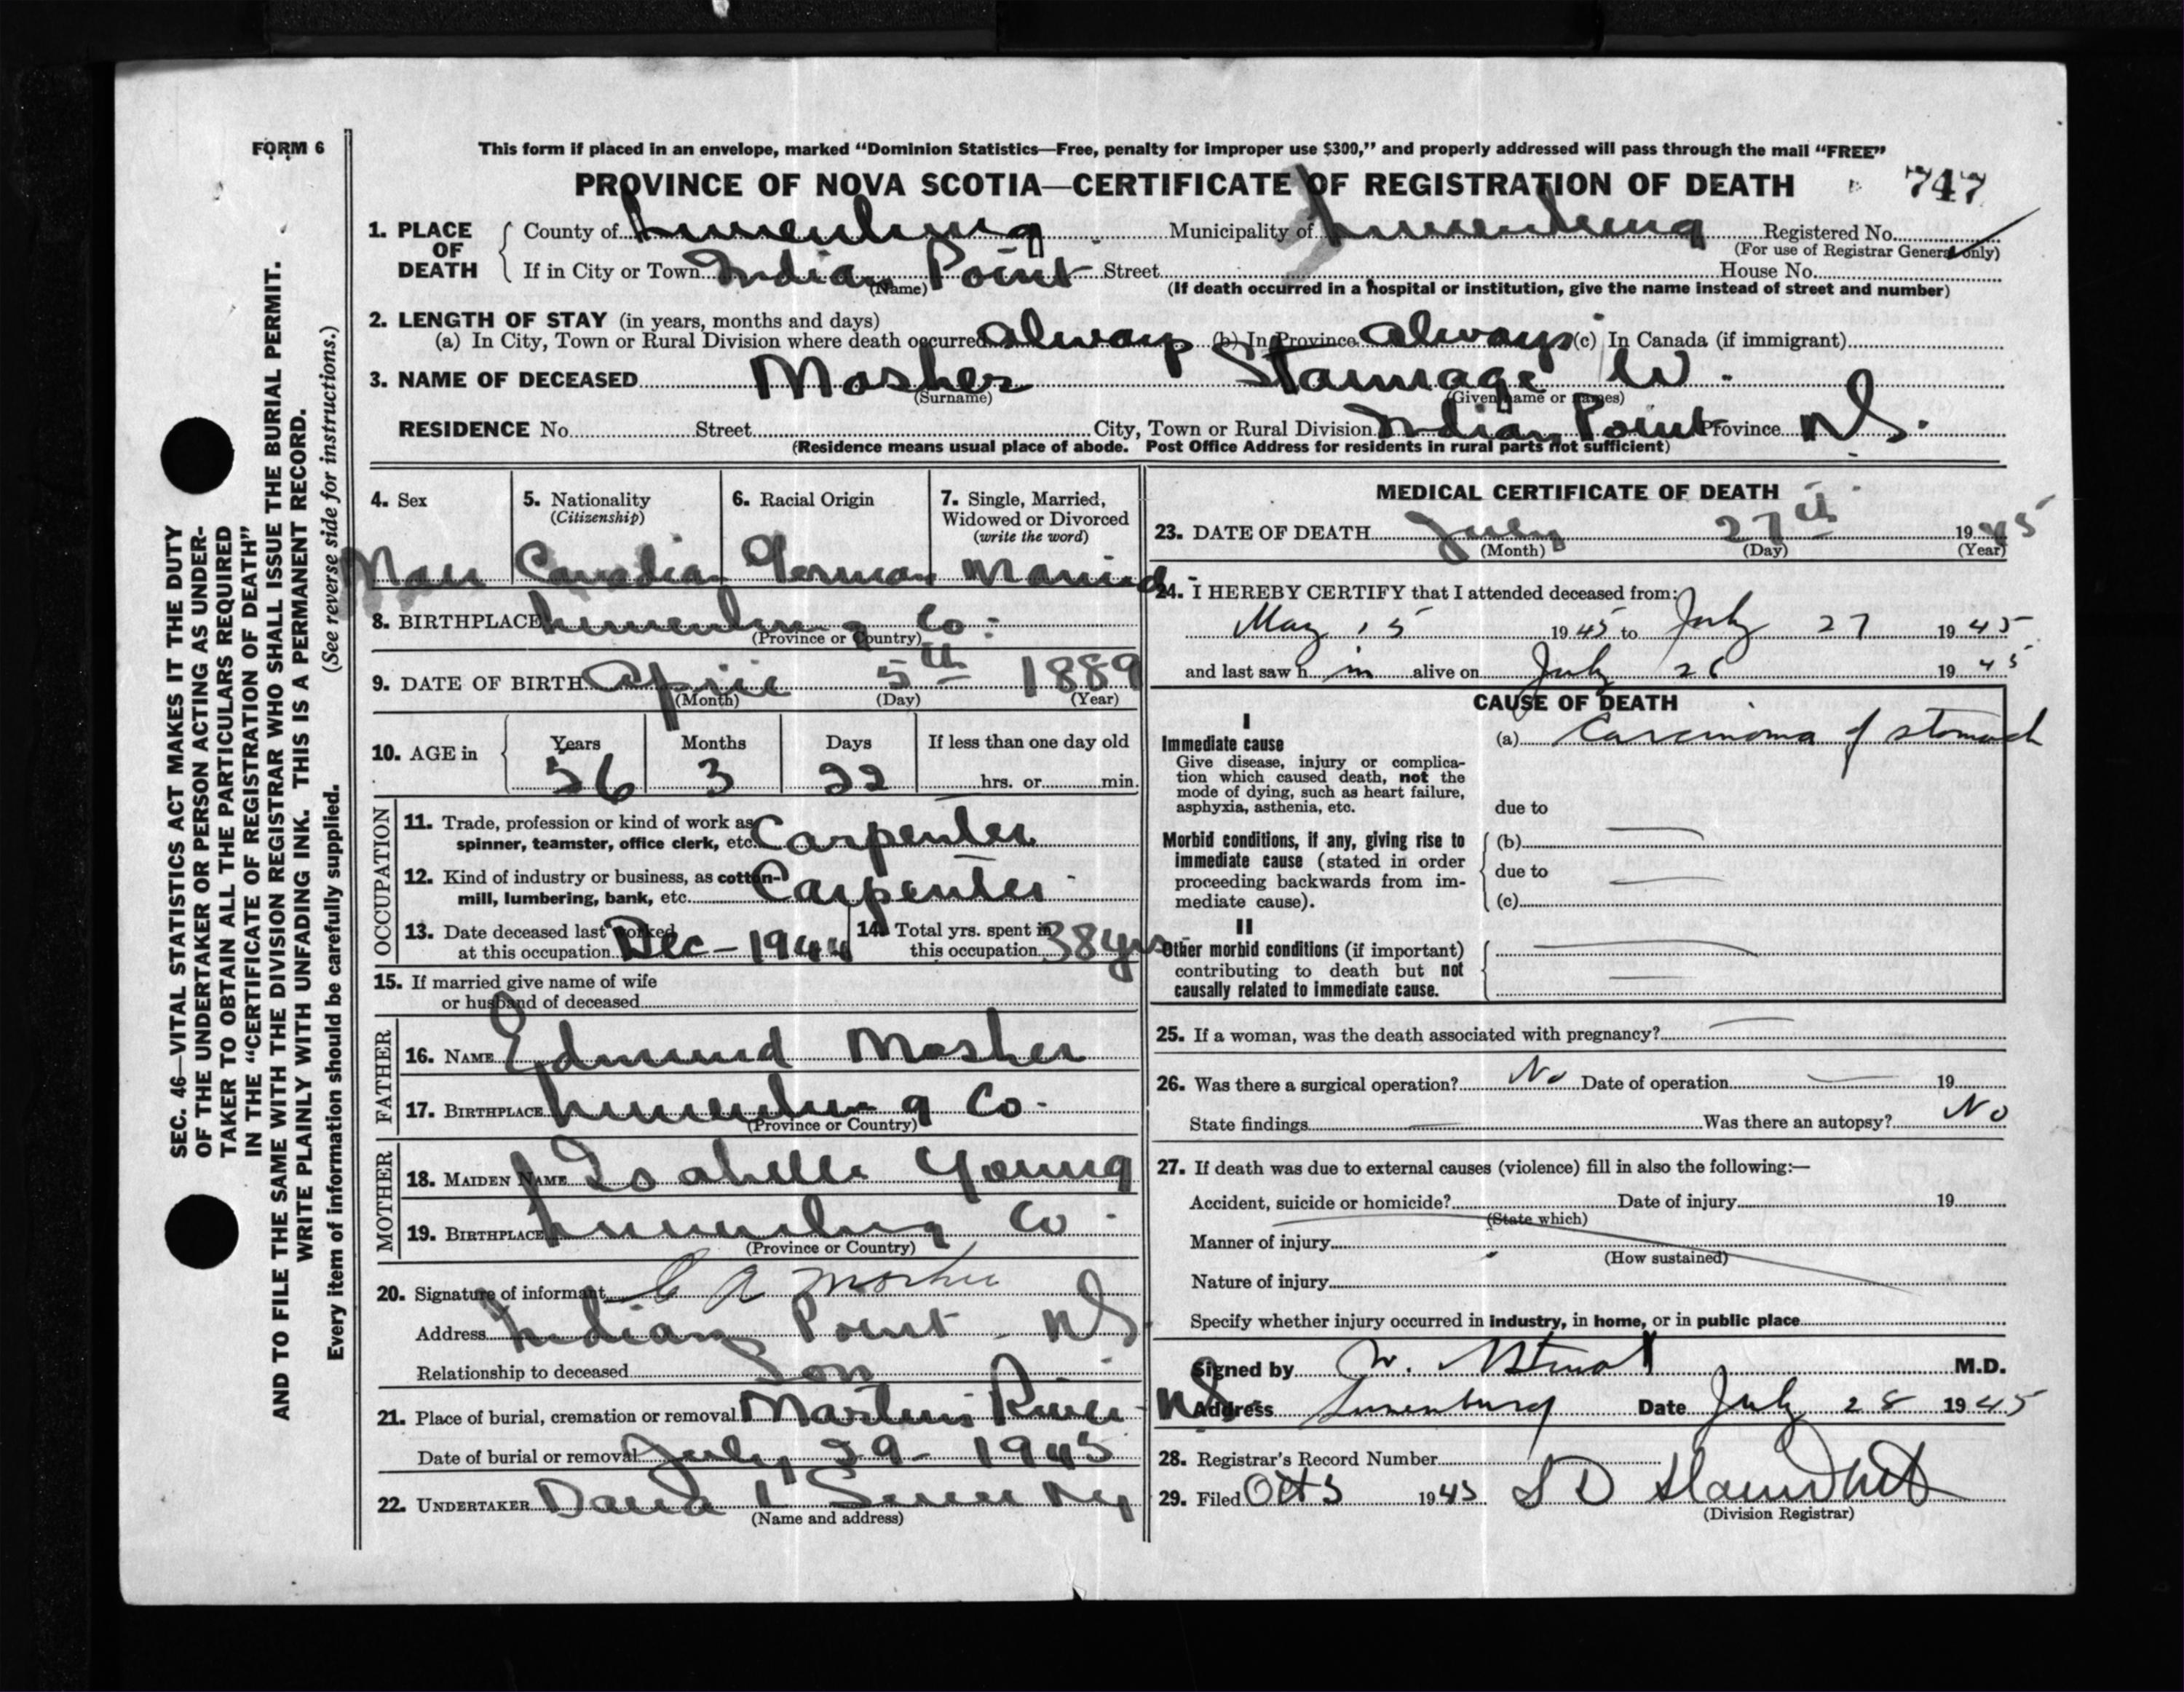 FORM 6
This form if placed in an envelope, marked “Dominion Statistics—Free, penalty for improper use $300,” and properly addressed will pass through the mail “FREE”
PROVINCE OF NOVA SCOTIA—CERTIFICATE OF REGISTRATION OF DEATH 747
1. PLACE OF DEATH County of Lunenburg Municipality of Lunenburg Registered No.
(For use of Registrar General only)
If in City or Town Indian Point Street House No.
(Name) (If death occurred in a hospital or institution, give the name instead of street and number)
2. LENGTH OF STAY (in years, months and days)
(a) In City, Town or Rural Division where death occurred always (b) In Province always (c) In Canada (if immigrant)
3. NAME OF DECEASED Mosher Stannage W.
(Surname) (Given name or names)
RESIDENCE No. Street City, Town or Rural Division Indian Point Province N.S.
(Residence means usual place of abode. Post Office Address for residents in rural parts not sufficient)
4. Sex 5. Nationality (Citizenship) 6. Racial Origin 7. Single, Married, Widowed or Divorced (write the word)
Male Canadian German Married
8. BIRTHPLACE Lunenburg Co.
(Province or Country)
9. DATE OF BIRTH April 5th 1889
(Month) (Day) (Year)
10. AGE in Years Months Days If less than one day old
56 3 22 hrs. or min.
OCCUPATION
11. Trade, profession or kind of work as spinner, teamster, office clerk, etc. Carpenter
12. Kind of industry or business, as cotton-mill, lumbering, bank, etc. Carpenter
13. Date deceased last worked at this occupation Dec - 1944 14. Total yrs. spent in this occupation 38 yrs
15. If married give name of wife
or husband of deceased
FATHER
16. NAME Edmund Mosher
17. BIRTHPLACE Lunenburg Co.
(Province or Country)
MOTHER
18. MAIDEN NAME Isabelle Young
19. BIRTHPLACE Lunenburg Co.
(Province or Country)
20. Signature of informant C A Mosher
Address Indian Point N.S.
Relationship to deceased Son
21. Place of burial, cremation or removal Martins River N.S.
Date of burial or removal July 29 - 1945
22. UNDERTAKER
(Name and address)
MEDICAL CERTIFICATE OF DEATH
23. DATE OF DEATH July 27th 1945
(Month) (Day) (Year)
24. I HEREBY CERTIFY that I attended deceased from:
May 15 1945 to July 27 1945
and last saw h im alive on July 26 1945
CAUSE OF DEATH
I
Immediate cause (a) Carcinoma of stomach
Give disease, injury or complica-
tion which caused death, not the
mode of dying, such as heart failure,
asphyxia, asthenia, etc. due to
Morbid conditions, if any, giving rise to (b)
immediate cause (stated in order
proceeding backwards from im- due to
mediate cause). (c)
II
Other morbid conditions (if important)
contributing to death but not
causally related to immediate cause.
25. If a woman, was the death associated with pregnancy?
26. Was there a surgical operation? No Date of operation 19
State findings Was there an autopsy? No
27. If death was due to external causes (violence) fill in also the following:—
Accident, suicide or homicide? Date of injury 19
(State which)
Manner of injury
(How sustained)
Nature of injury
Specify whether injury occurred in industry, in home, or in public place
Signed by M.D.
Address Lunenburg Date July 28 1945
28. Registrar's Record Number
29. Filed Oct 3 1945
(Division Registrar)
SEC. 46—VITAL STATISTICS ACT MAKES IT THE DUTY
OF THE UNDERTAKER OR PERSON ACTING AS UNDER-
TAKER TO OBTAIN ALL THE PARTICULARS REQUIRED
IN THE “CERTIFICATE OF REGISTRATION OF DEATH”
AND TO FILE THE SAME WITH THE DIVISION REGISTRAR WHO SHALL ISSUE THE BURIAL PERMIT.
WRITE PLAINLY WITH UNFADING INK. THIS IS A PERMANENT RECORD.
Every item of information should be carefully supplied. (See reverse side for instructions.)